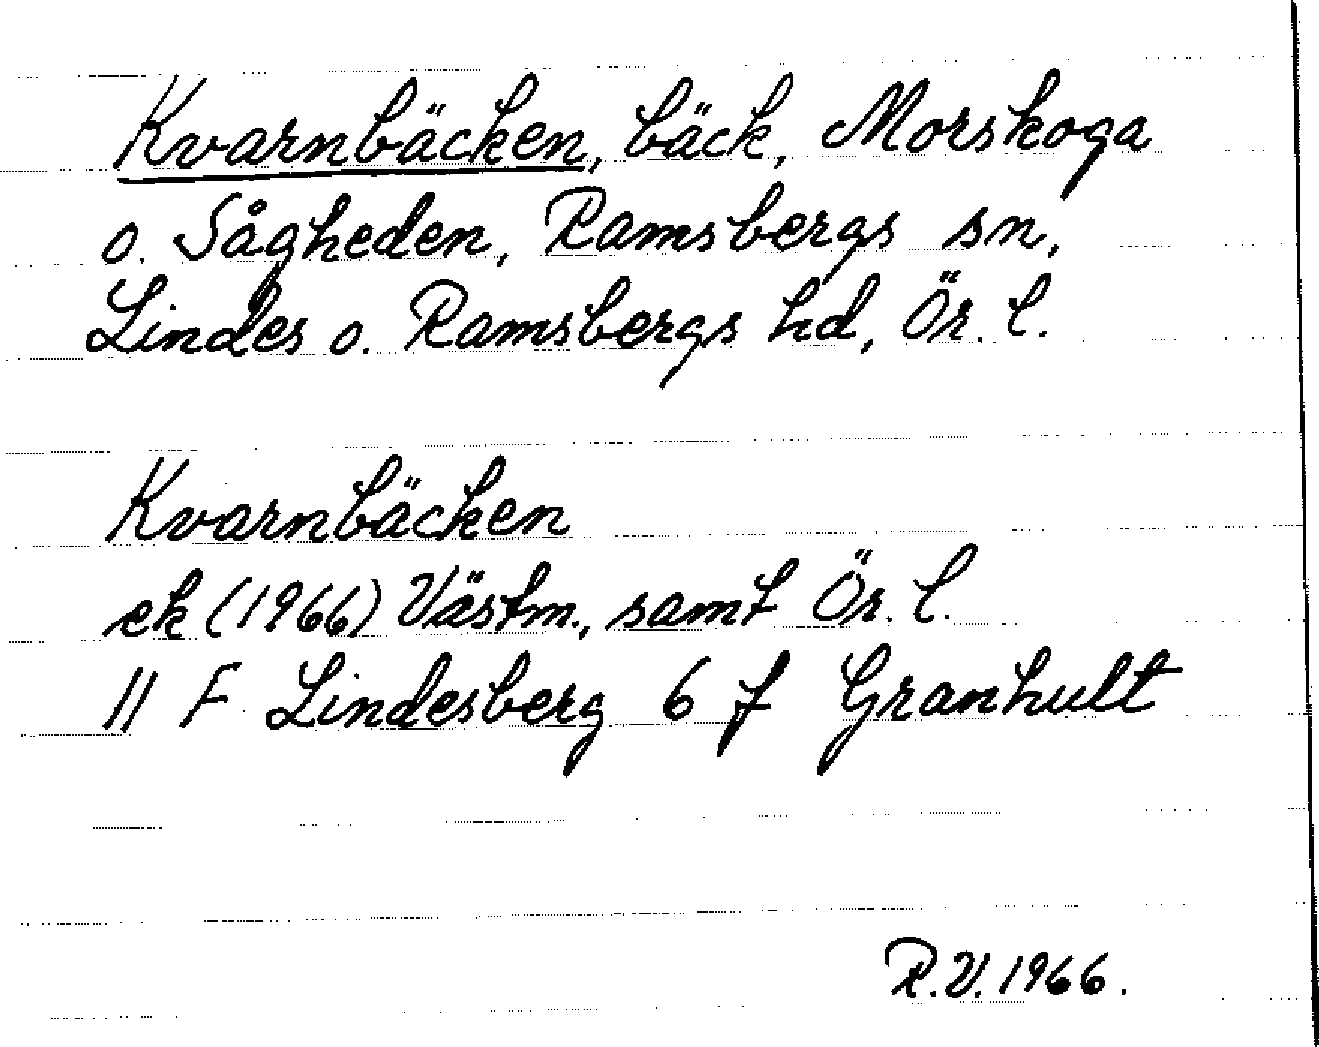 Kvarnbäcken, bäck, Morskoga
o. Sågheden, Ramsbergs sn,
Lindes o. Ramsbergs hd, Ör. l.
Kvarnbäcken
ek (1966) Västm., samt Ör. l.
11 F Lindesberg 6 f Granhult
R.V. 1966.